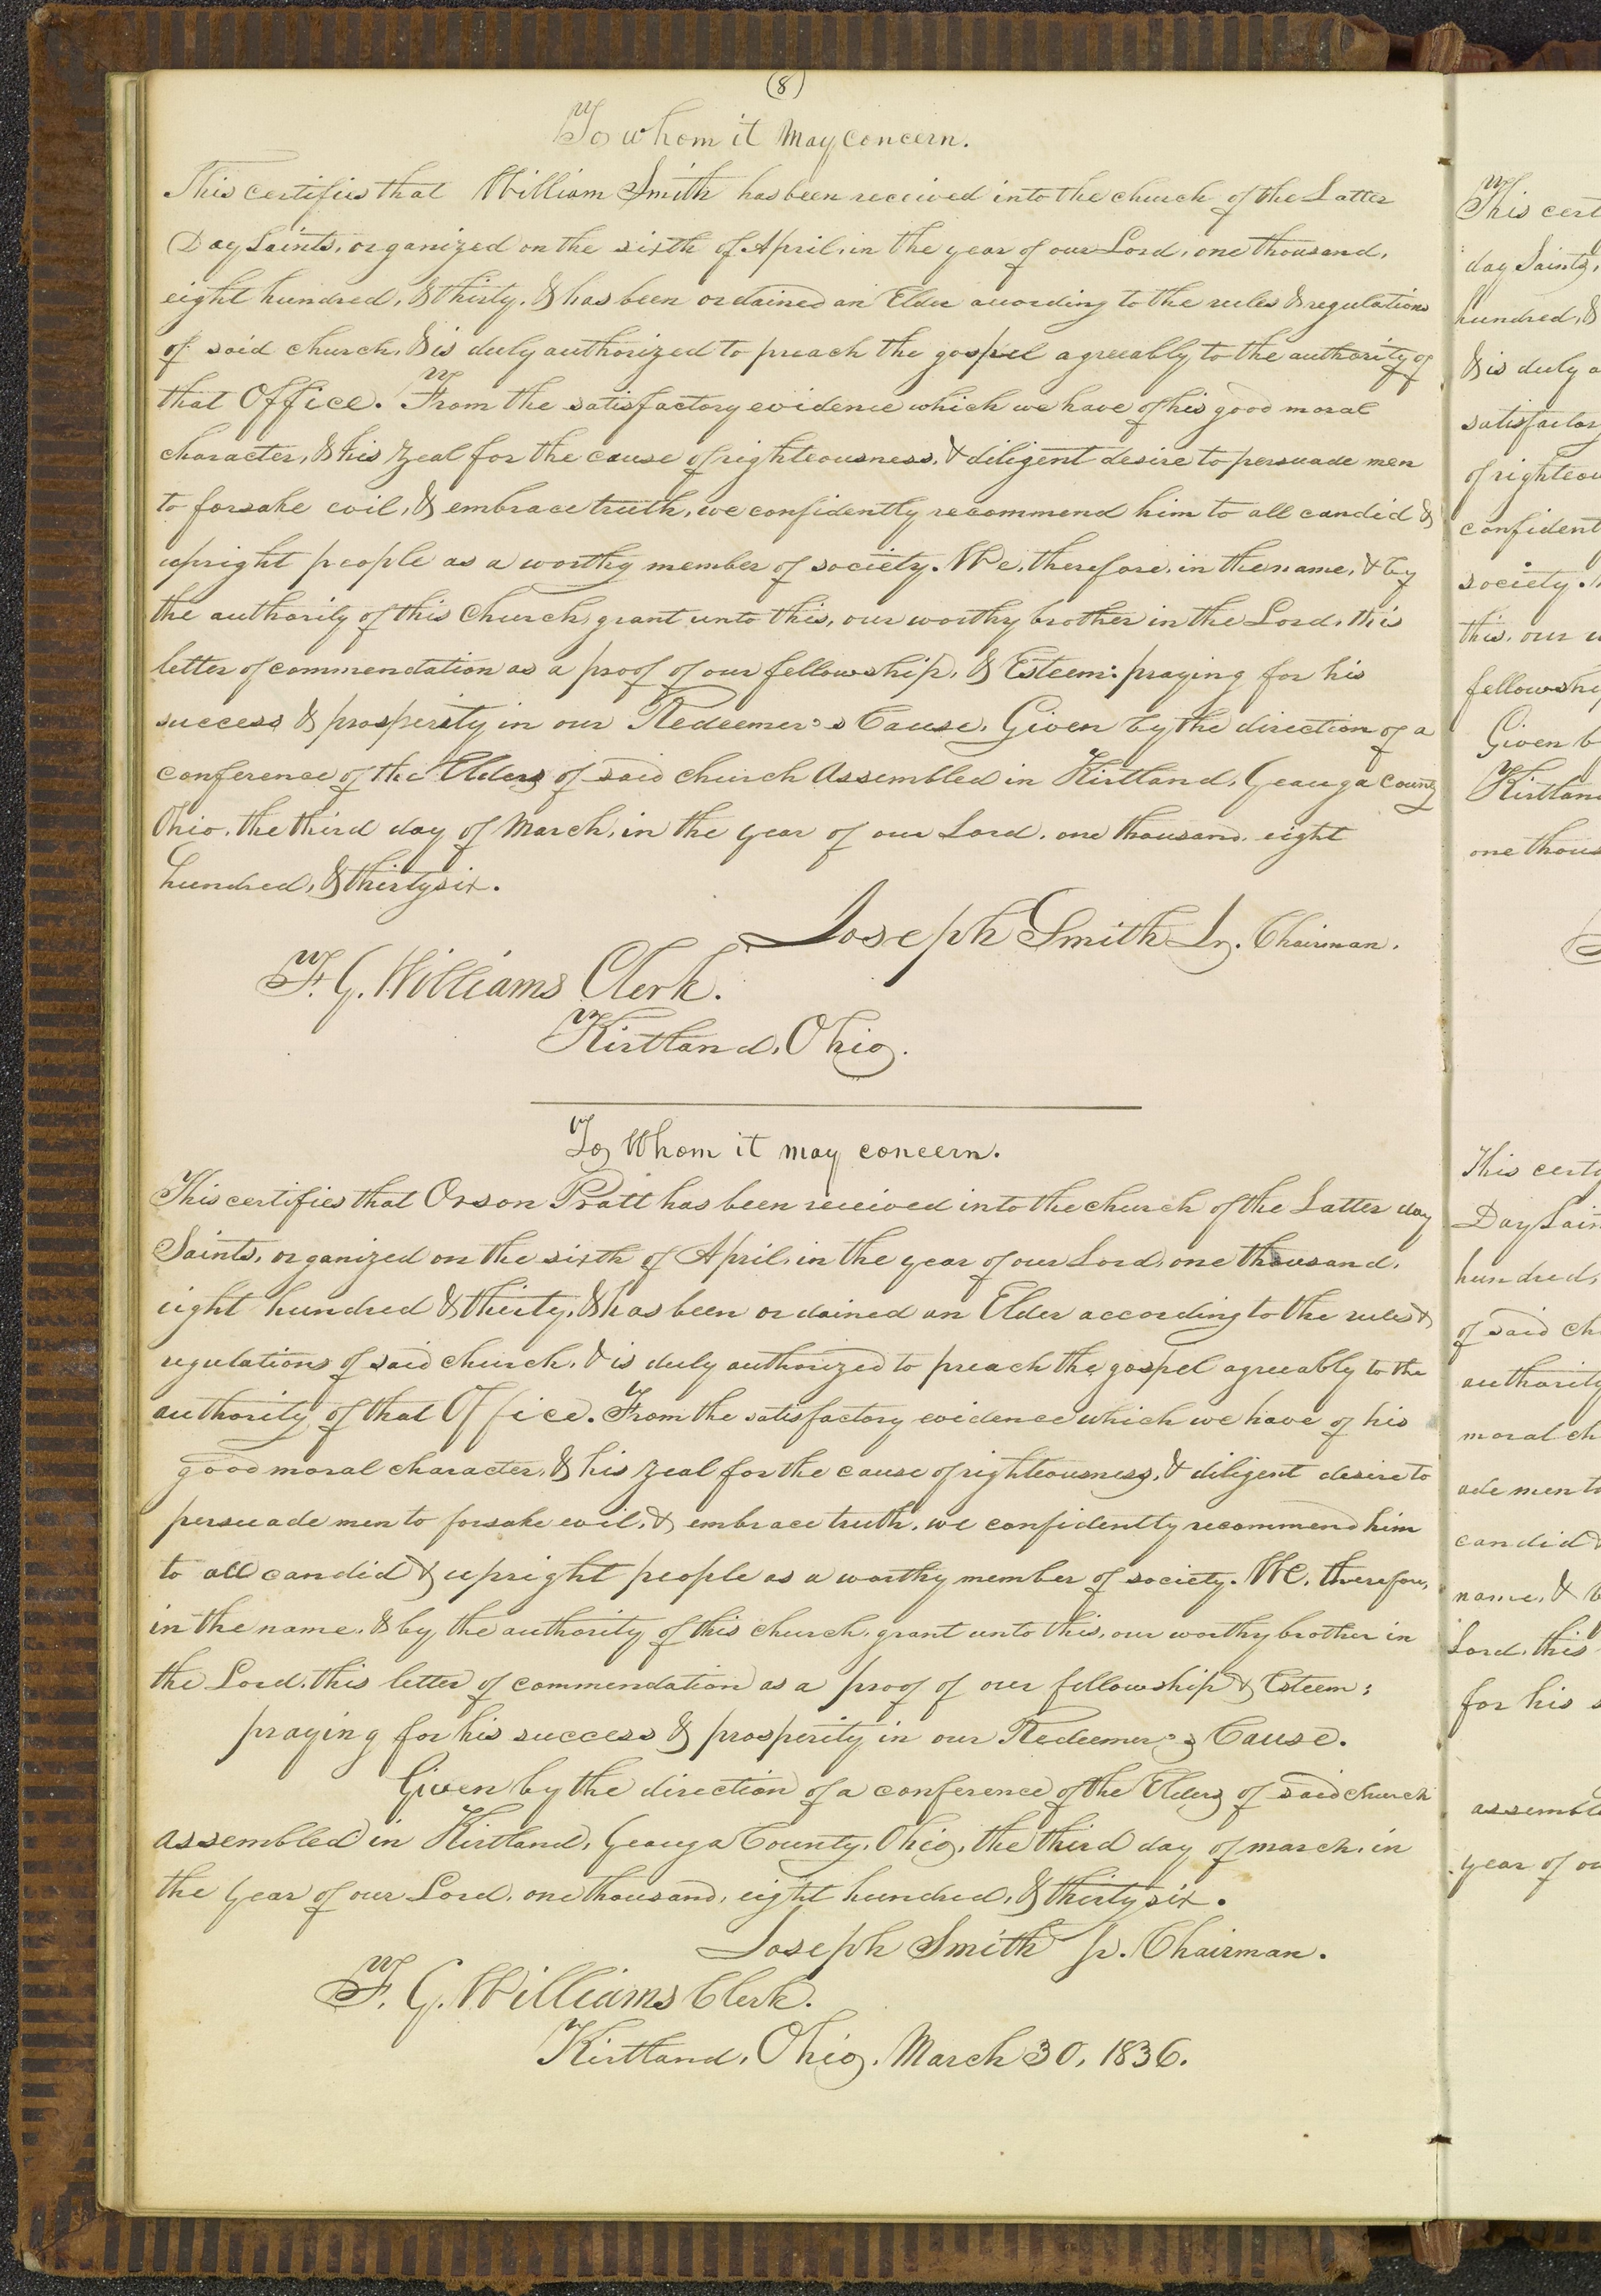 (8)
To whom it May concern.
This certifies that William Smith has been received into the church of the Latter
Day Saints, organized on the sixth of April, in the year of our Lord, one thousand,
eight hundred, & thirty, & has been ordained an Elder according to the rules & regulations
of said church, & is duly authorized to preach the gospel agreeably to the authority of
that Office. From the satisfactory evidence which we have of his good moral
character, & his zeal for the cause of righteousness, & diligent desire to persuade men
to forsake evil, & embrace truth, we confidently recommend him to all candid &
upright people as a worthy member of society. We, therefore, in the name, & by
the authority of this Church, grant unto this, our worthy brother in the Lord, this
letter of commendation as a proof of our fellowship, & Esteem: praying for his
success & prosperity in our Redeemer's Cause. Given by the direction of a
conference of the Elders of said church Assembled in Kirtland, Geauga County
Ohio, the third day of March, in the year of our Lord, one thousand, eight
hundred, & thirty six.
Joseph Smith Jr. Chairman.
F. G. Williams Clerk.
Kirtland, Ohio.
To Whom it may concern.
This certifies that Orson Pratt has been received into the church of the Latter day
Saints, organized on the sixth of April, in the year of our Lord, one thousand,
eight hundred & thirty, & has been ordained an Elder according to the rules &
regulations of said church, & is duly authorized to preach the gospel agreeably to the
authority of that Office. From the satisfactory evidence which we have of his
good moral character, & his zeal for the cause of righteousness, & diligent desire to
persuade men to forsake evil, & embrace truth, we confidently recommend him
to all candid & upright people as a worthy member of society. We, therefore,
in the name, & by the authority of this church, grant unto this, our worthy brother in
the Lord, this letter of commendation as a proof of our fellowship & Esteem;
praying for his success & prosperity in our Redeemer's Cause.
Given by the direction of a conference of the Elders of said church
assembled in Kirtland, Geauga County, Ohio, the third day of march, in
the year of our Lord, one thousand, eight hundred, & thirty six.
Joseph Smith Jr. Chairman.
F. G. Williams Clerk.
Kirtland, Ohio, March 30, 1836.
This cert
day Saints,
hundred, &
& is duly a
satisfactor
of righteou
confident
society.
this, our w
fellowship
Given b
Kirtlan
one thous
This certi
Day Sain
hundred,
of said ch
authority
moral ch
ade men to
candid &
name, & b
Lord, this
for his s
assemble
year of ou